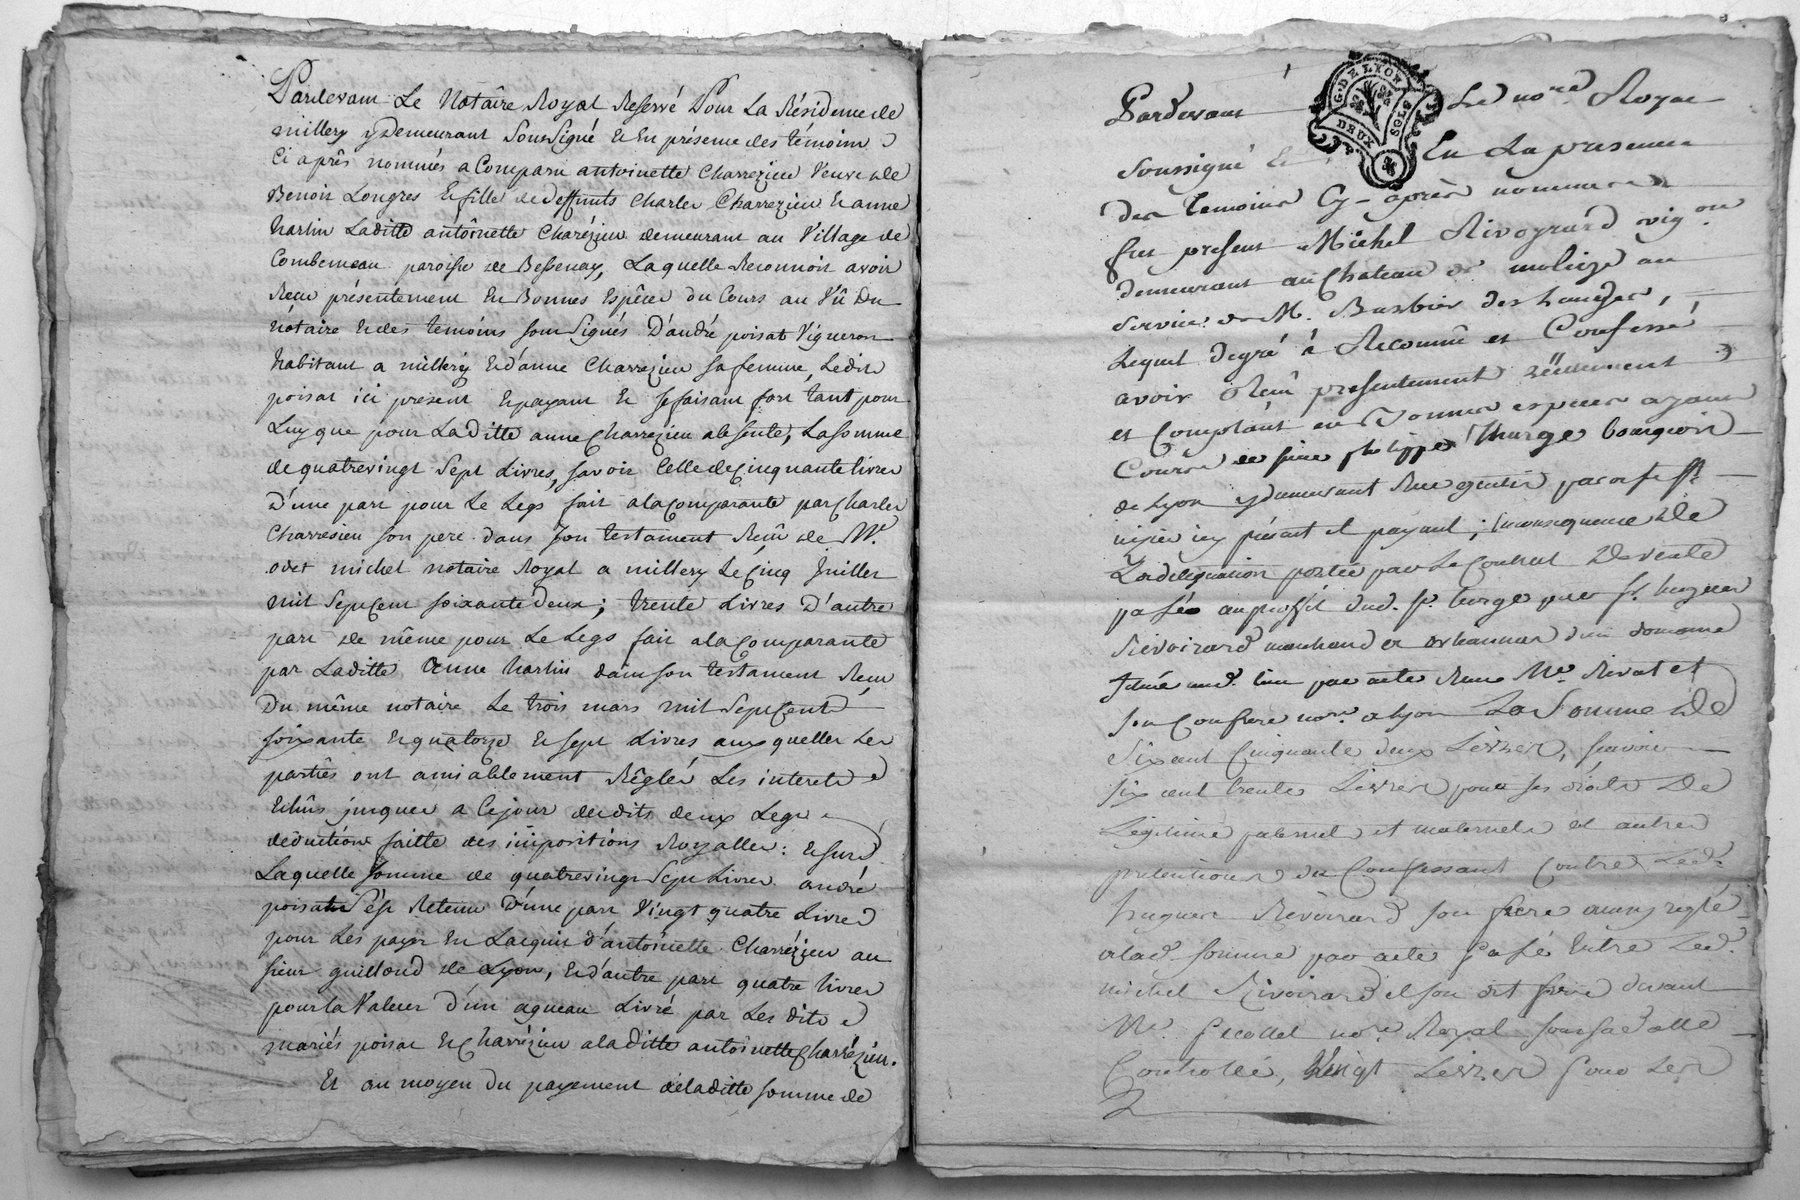 Pardevant Le Notaire Royal Reservé Pour La Résidence de
millery y Demeurant Soussigné Et En présence des témoins
Ci après nommés a Comparu antoinette Charrezieu Veuve de
Benoit Longres Et fille de deffunts Charles Charrezieu Et anne
hartin Laditte antoinette Charézieu demeurant au Village de
Combemeau paroisse de Bessenay, Laquelle Reconnoit avoir
Recu présentement En Bonnes Espêces du Cours au Vû Du
nôtaire Et des temoins sous Signés D'andré poisat Vigneron
habitant a millery Et d'anne Charrezieu sa femme, Ledit
poisat ici present Et payant Et se faisant fort tant pour
Luy que pour Laditte anne Charrezieu absente, La somme
de quatrevingt Sept Livres, savoir Celle de Cinquante livres
D'une part pour Le Legs fait a la Comparante par Charles
Charresieu son pere dans son testament Reçû de Me.
odet michel notaire Royal a millery Le Cinq Juillet
mil Sept Cent soixante deux; trente Livres D'autre
part de même pour Le Legs fait a la Comparante
par Laditte Anne hartin dans son testament Recu
Du même notaire Le trois mars mil Sept Cent
soixante Et quatorze Et sept Livres auxquelles Les
parties ont amiablement Réglés Les interets
Echûs jusques a Ce jour desdits deux Legs
déduction faitte des impositions Royalles: Et sur
Laquelle somme de quatrevingt Sept Livres andré
poisat S'est Retenu D'une part Vingt quatre Livres
pour Les payer En L'acquit d'antoinette Charrézieu au
sieur guilloud de Lyon, Et d'autre part quatre livres
pour la Valeur d'un agneau Livré par Les dits
mariés poisat Et Charrézieu a la ditte antoinette Charrézieu.
Et au moyen du payement de laditte somme de
Pardevant Le nore Royal
G. DE LYON
DEUX SOLS
soussigné Et En La presence
des temoins Cy-après nommés
fut present Michel Rivoyrard vig.on
demeurant au Chateau de au
service de M. Barbier des
Lequel degré à Reconnû et Confessé
avoir Reçû presentement réellement
et Comptant en Bonnes especes ayant
Cours de sieur philippe Thurge bourgeois
de Lyon y demeurant Rue paroisse St.
nizier icy présent et payant; en consequence de
La delegation portée par Le Contrat De vente
passée au proffit dud. Sr. turge par Sr. hugues
Rivoirard marchand et d'un domaine
situé aud. lieu par acte Recu Me. Rivat et
son Confrere nore. a Lyon La Somme de
Six cent Cinquante deux Livres, scavoir
six cent trente Livres pour ses droits De
Légitime paternel et maternels et autres
prétentions du Confessant Contre Led.
hugues Révoirard son frere reglé
a lad. somme par acte passé Entre Led.
michel Rivoirard et son dit frere devant
Me. nore. Royal
Controllé, Vingt Livres pour Les